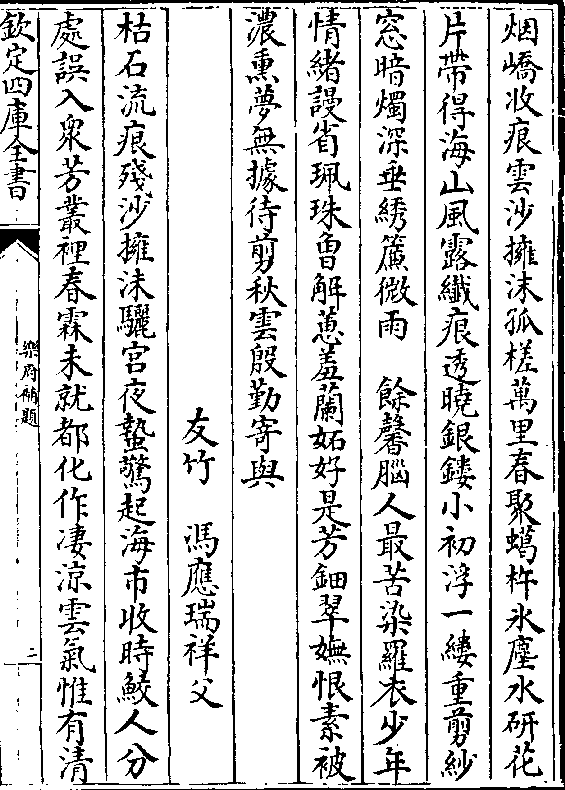 烟嶠收痕雲沙擁沫孤槎萬里春聚蠟杵氷塵水研花
片帶得海山風露纖痕透曉銀鏤小初浮一縷重剪紗
窓暗燭深垂綉簾微雨　餘馨腦人最苦染羅衣少年
情緒謾省珮珠曾解蕙羞蘭妬好是芳鈿翠嫵恨素被
濃熏夢無據待剪秋雲殷勤寄與
友竹　馮應瑞祥父
枯石流痕殘沙擁沫驪宫夜蟄驚起海市收時鮫人分
處誤入衆芳叢裡春霖未就都化作凄涼雲氣惟有清
欽定四庫全書
樂府補題
二